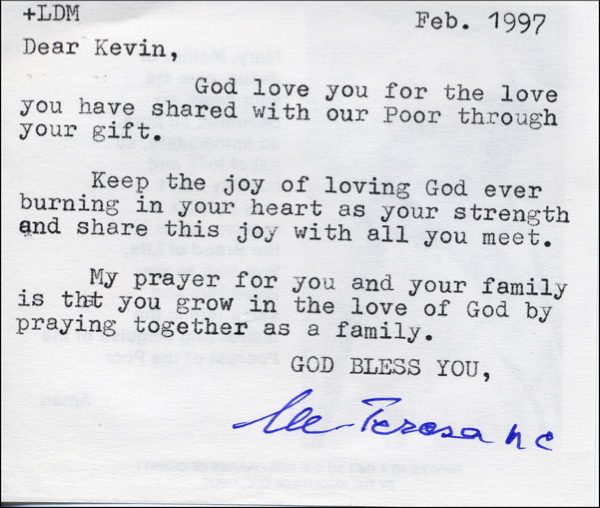 +LDM
Feb. 1997
Dear Kevin,
God love you for the love
you have shared with our Poor through
your gift.
Keep the joy of loving God ever
burning in your heart as your strength
and share this joy with all you meet.
My prayer for you and your family
is that you grow in the love of God by
praying together as a family.
GOD BLESS YOU,
Teresa mc